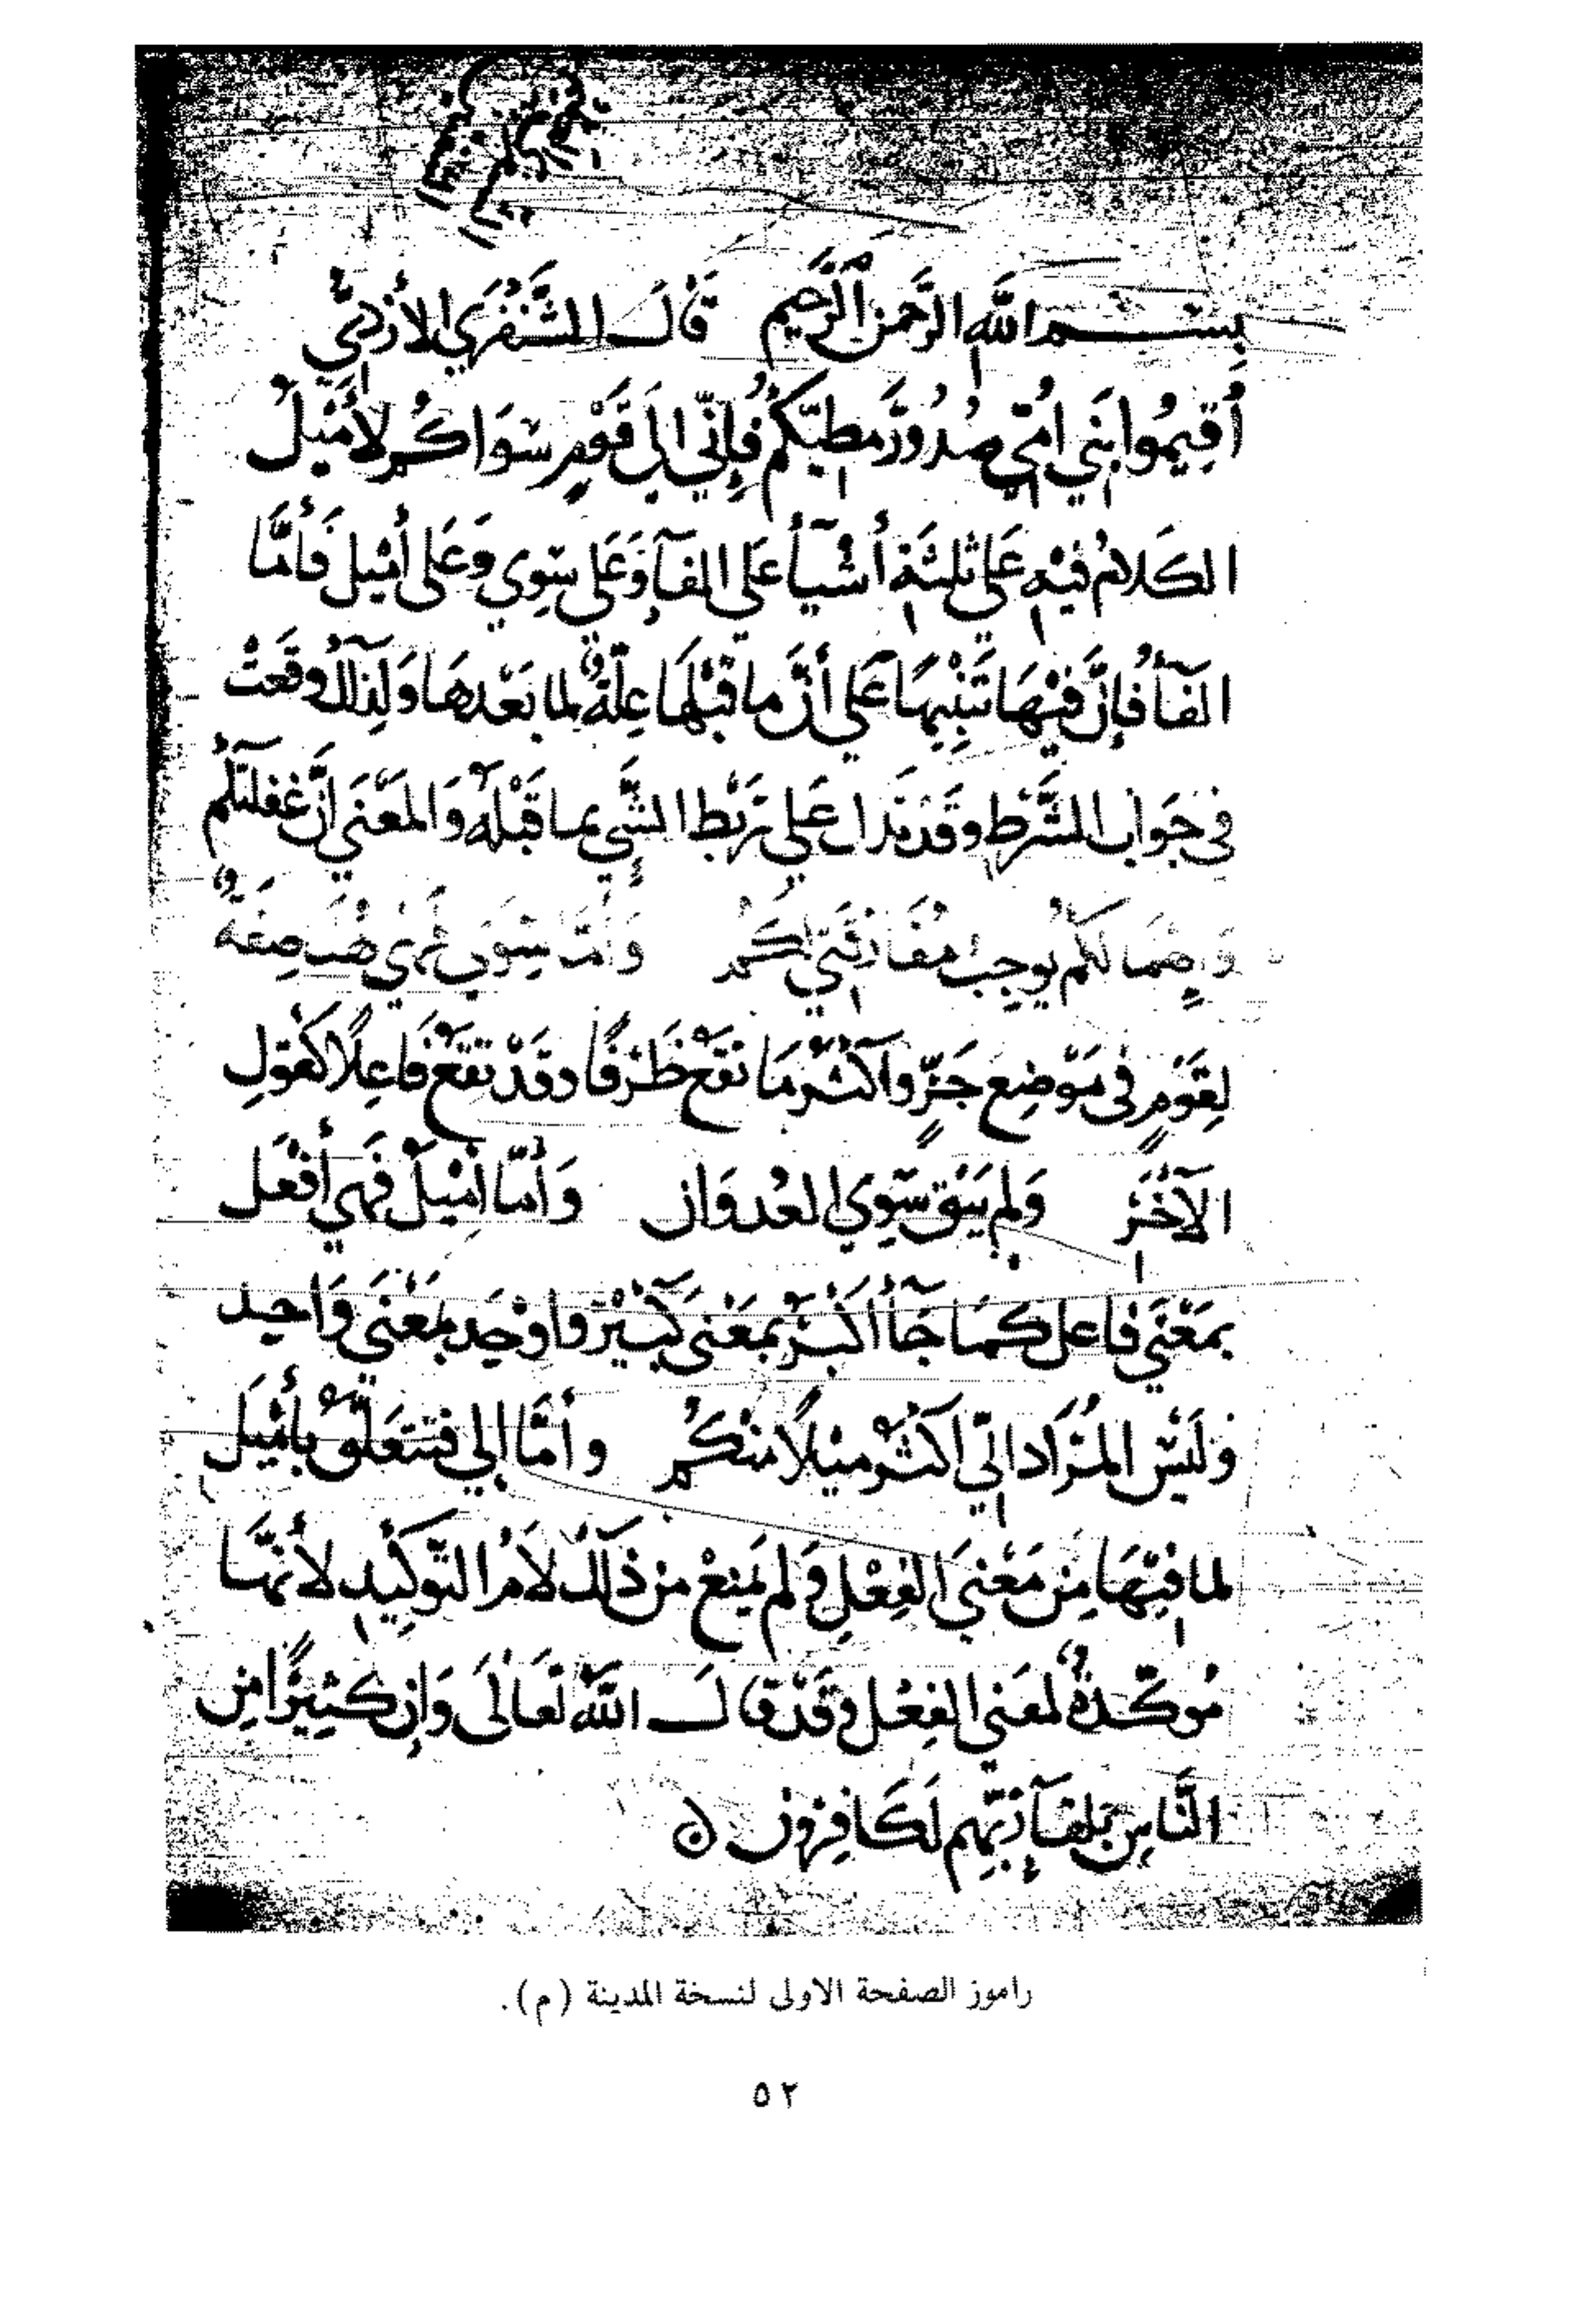 بسم الله الرَّحمن الرَّحيم قَالَ الشَّنفَرَي الأَزدِيُّ
أَقِيمُوا بَنِي أُمِّي صُدُورَ مَطِيِّكُم فَإِنِّي الَى قَوْمٍ سِوَاكُم لَأَمْيَلُ
الكَلامُ فيْهِ عَلى ثلثَةِ أَشْيآء عَلى الفآءِ وَعَلى سِوي وَعَلى أَمْيل فَأَمَّا
الفآءُ فَإنَّ فيْهَا تَنْبِيهًا عَلي أَنَّ ما قبْلَها عِلَّةٌ لما بَعْدهَا وَلِذلكَ وقَعَتْ
في جَوَاب الشَّرْط وقَدْ تدَل عَلي رَبْط الشَّيءِ بما قَبْلَهُ وَالمَعْنَي أَنَّ غفلتَكُم
وَإِهمَالكُم يُوجِبُ مُفَارَقَتي لكُم وَأمّا سِوَي فهي هُنَا صِفَةٌ
لِقَوْمٍ في مَوْضِعِ جَرٍّ وأكثَرُ مَا تقَعُ ظَرْفًا وقَدْ تقَعُ فَاعِلًا كَقولِ
الآخَر وَلم يَبْقَ سِوي العُدوَان وَأَمّا أَمْيَلُ فَهي أَفْعَل
بمَعْنَي فاعل كمَا جَآءَ أَكْبَر بمَعْنَى كَبيْر وأوْحَد بمَعْنَي وَاحِد
وَلَيْسَ المُرَاد انّي أكثَرُ ميْلًا منكُم وأَمَّا إلي فتتعَلّقُ بأَمْيَل
لما فيْهَا مِن مَعْنيَ الفِعْلِ وَلم يَمنعْ من ذَلكَ لَامُ التّوكِيد لأَنَّهَا
مُوكّدةٌ لمعَني الفِعْل وقَدْ قالَ اللّهُ تعَالَى وَإن كثِيرًا مِن
النَّاسِ بلقآءِ رَبّهِم لَكَافِرُون
راموز الصفحة الاولى لنسخة المدينة (م).
٥٢